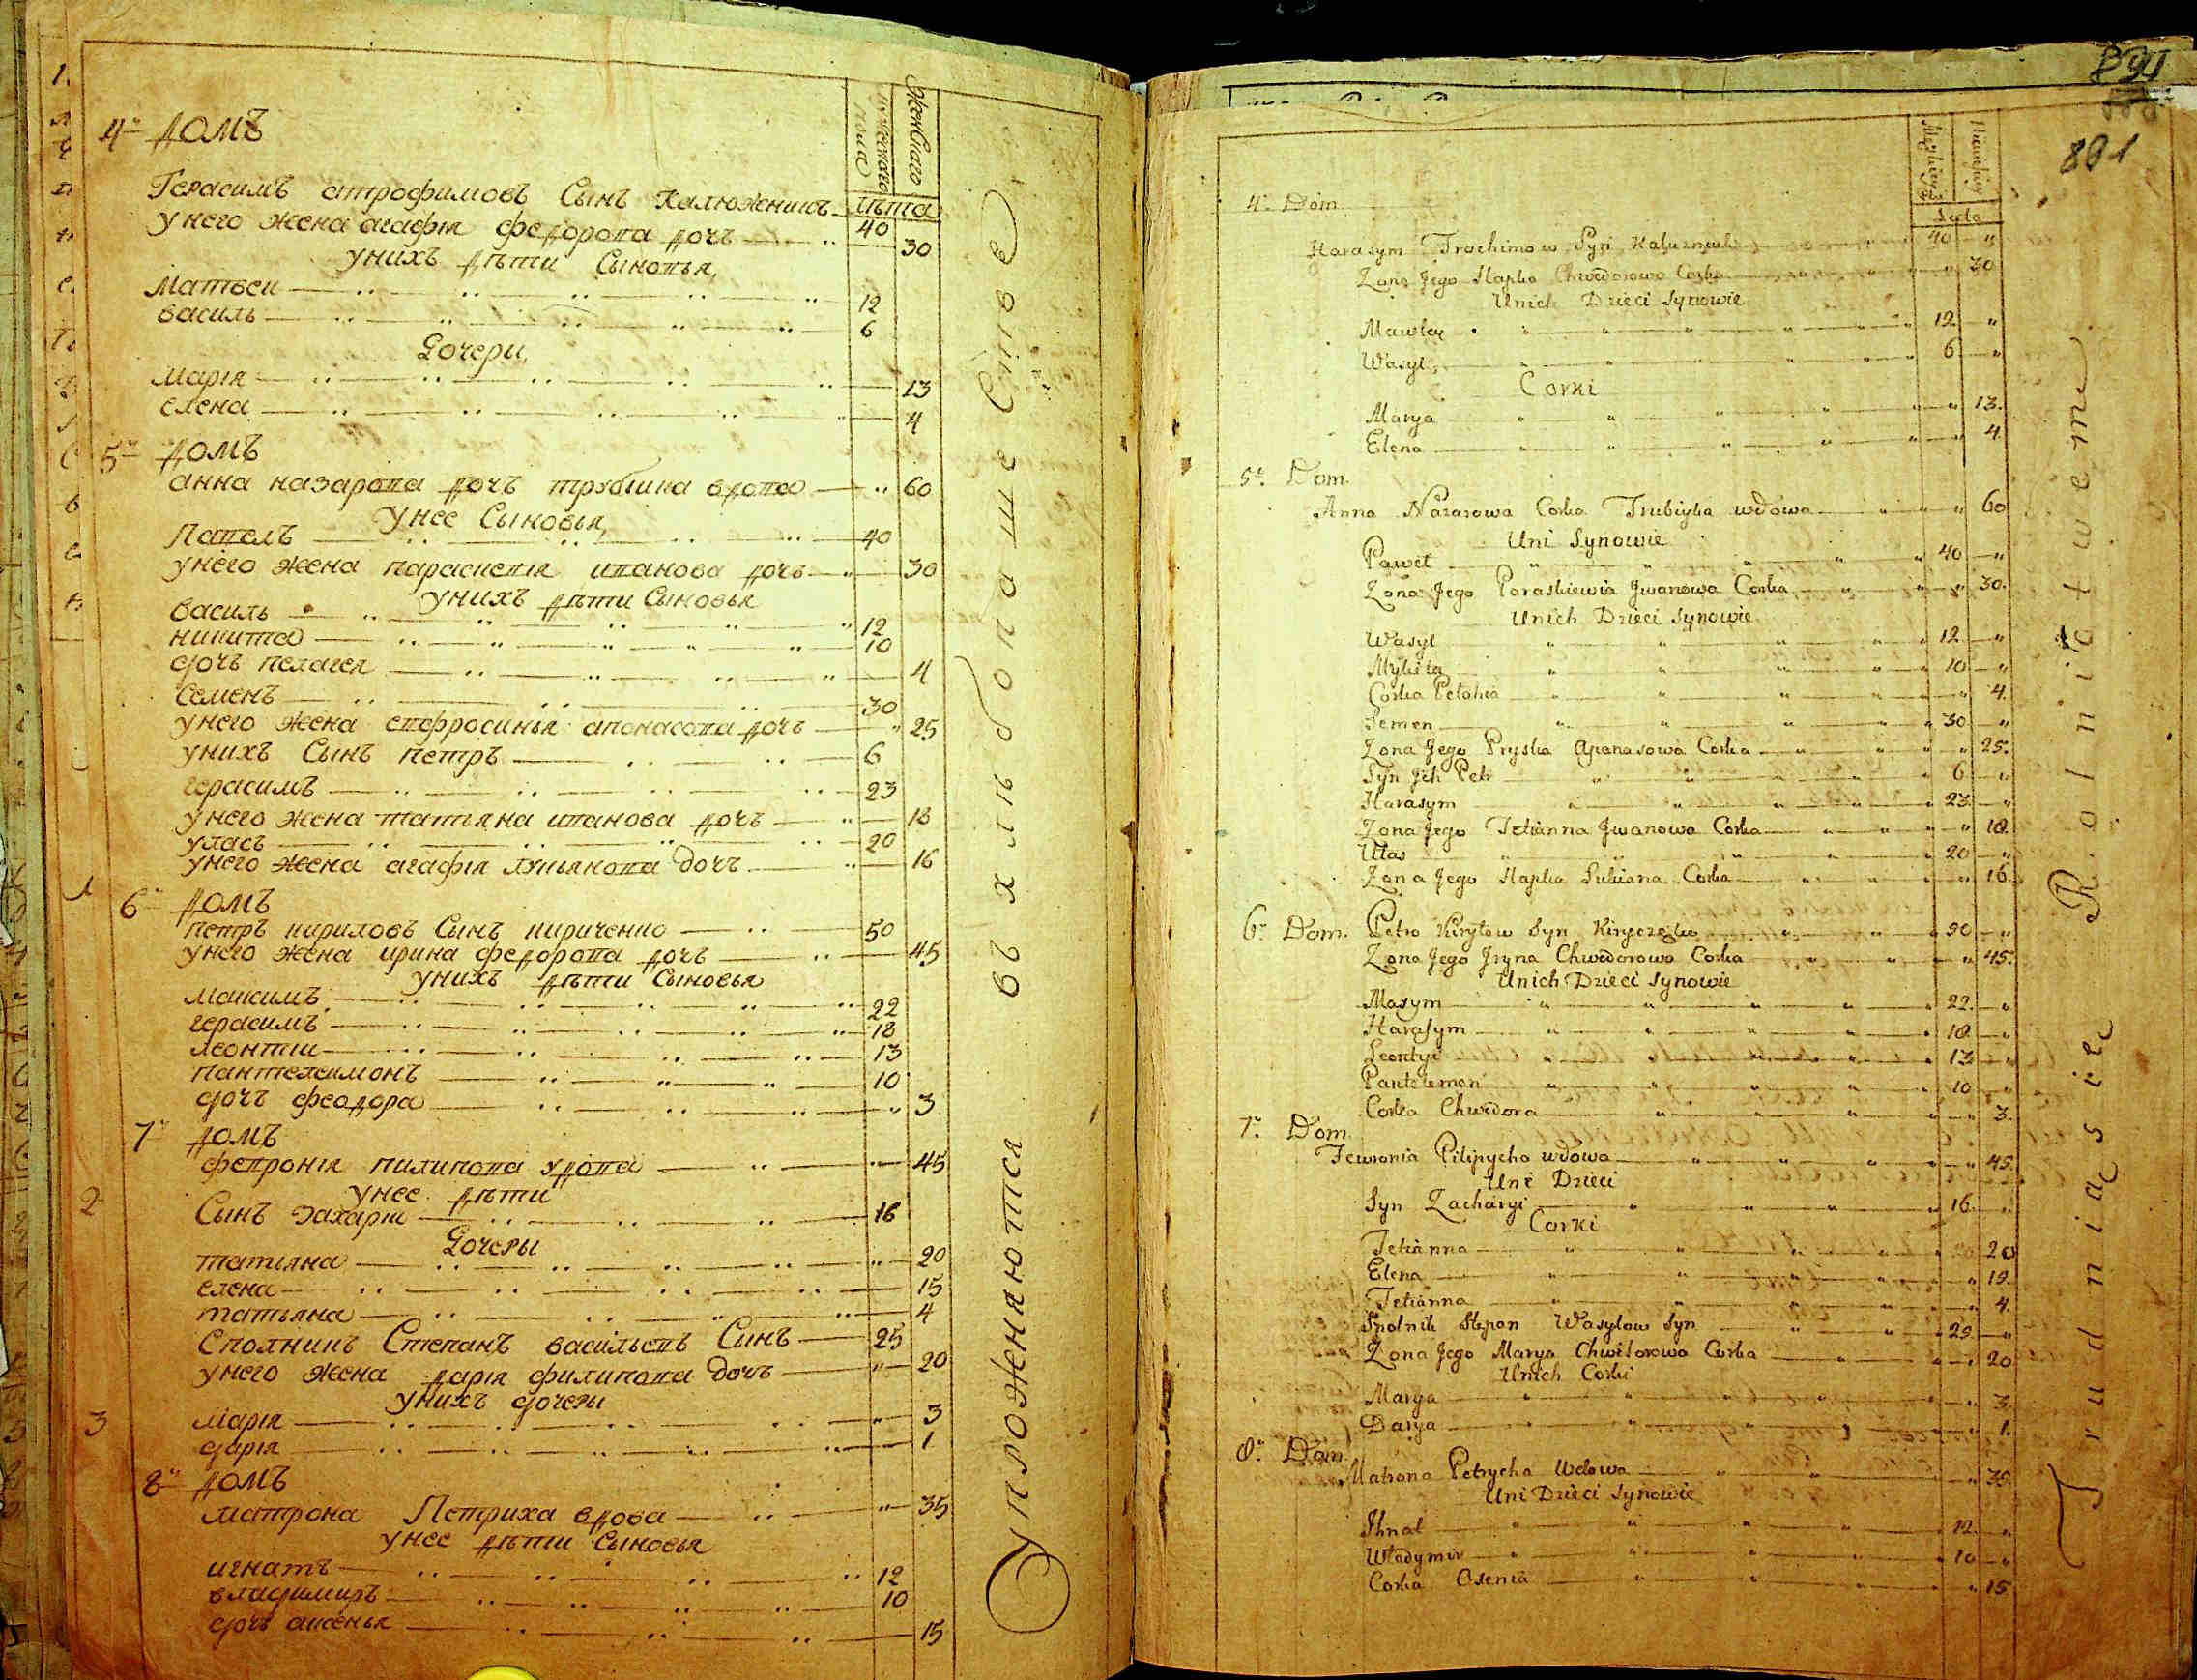 Мужескаго пола
Женскаго
лѣта
4й домъ
Герасимъ атрофимовъ Сынъ Калюжниий 40
унего жена агафія федорова дочъ 30
унихъ дѣти Сыновья,
Матвеи 12
василь 6
Дочери,
марія 13
елена 4
5й домъ
анна назарова дочъ трубиина вдова 60
унее Сыновья,
Павелъ 40
унего жена параскевія иванова дочъ 30
унихъ дѣти Сыновья
василь 12
никита 10
дочъ пелагея 4
Семенъ 30
унего жена евфросинья апонасова дочъ 25
унихъ Сынъ петръ 6
герасимъ 23
унего жена татьяна иванова дочъ 18
уласъ 20
унего жена агафія лукьянова дочъ 16
6й домъ
петръ кириловъ Сынъ кириченко 50
унего жена ирина федорова дочъ 45
унихъ дѣти Сыновья
максимъ 22
герасимъ 18
леонтии 13
пантелеимонъ 10
дочъ феодора 3
7й домъ
февронія пилипова удова 45
унее дѣти
Сынъ захарiи 16
Дочеры
татьяна 20
елена 15
татьяна 4
Сполникъ Степанъ васильевъ Синъ 25
унего жена дарія филипова дочъ 20
унихъ дочеры
марія 3
дарія 1
8й домъ
матрона Петриха вдова 35
унее дѣти Сыновья
игнатъ 12
владимиръ 10
дочъ аксенья 15
Упложняются въ хлѣбопашествѣ
2
3
891
801
Lęta
4º Dom
Harasym Trochimow Syn Kaluznich 40 "
Zona Jego Hapka Chwedorowa Corka " 30
Unich Dzieci Synowie
Mawtey 12 "
Wasyl 6 "
Corki
Marya " 13.
Elena " 4
5º. Dom.
Anna Nazarowa Corka Trubiyka wdowa " 60
Uni Synowie
Paweł 40 "
Zona Jego Paraskiewia Jwanowa Corka " 30.
Unich Dzieci Synowie
Wasyl 12 "
Mykita 10 "
Corka Pelahia " 4.
Semen 30 "
Zona Jego Pryska Apanasowa Corka " 25.
Syn Jch Petr 6 "
Harasym 23 "
Zona Jego Tetianna Jwanowa Corka " 18.
Ułas 20 "
Zona Jego Hapka Łukiana Corka " 16.
6º. Dom. Petro Kiryłow Syn Kiryczenko 50 "
Zona Jego Jryna Chwedorowa Corka " 45.
Unich Dzieci Synowie
Maxym 22. "
Harasym 18. "
Leontyi 13 "
Pantelemon 10 "
Corka Chwedora " 3.
7º. Dom.
Fewronia Pilipycha wdowa " 45.
Uni Dzieci
Syn Zacharyi 16. "
Corki
Tetianna " 20
Elena " 15.
Tetianna " 4.
Spolnik Stepan Wasylow Syn 25. "
Zona Jego Marya Chwilorowa Corka " 20
Unich Corki
Marya " 3.
Darya " 1.
8º. Dom.
Matrona Petrycha Wdowa " 35.
Uni Dzieci Synowie
Jhnat 12. "
Władymir 10 "
Corka Oxenia " 15
Trudniąsię Rolnictwem